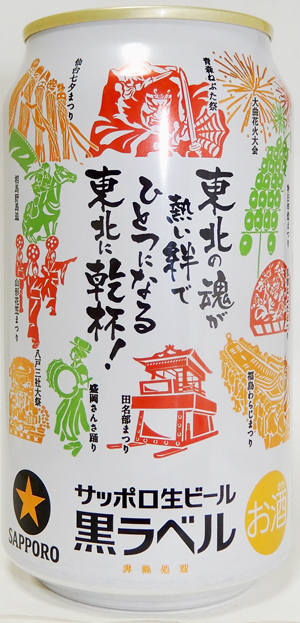 仙台七夕まつり
青森ねぶた祭
大曲花火大会
相馬野馬追
山形花笠まつり
八戸三社大祭
盛岡さんさ踊り
田名部まつり
福島わらじまつり
東北の魂が
熱い絆で
ひとつになる
東北に乾杯!
サッポロ生ビール
黒ラベル
お酒
SAPPORO
非熱処理